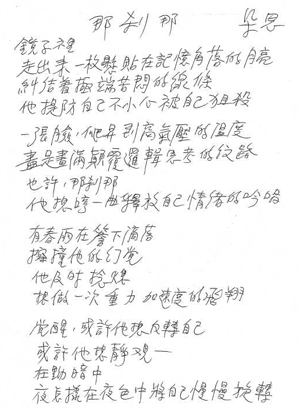 那剎那 染恩
鏡子裡
走出來一枚懸貼在記憶角落的月亮
糾結着極端苦悶的線條
他提防自己不小心被自己狙殺
一張臉，爬昇到高氣壓的溫度
盡是畫滿顛覆邏輯思考的紋路
也許，那剎那
他想哼一曲釋放自己情緒的吟哈
有春雨在簷下滴落
擁撞他的幻覺
他及时捻熄
想做一次重力加速度的飛翔
觉醒，或許他想反轉自己
或許他想靜观一
在黝暗中
夜怎樣在夜色中將自己慢慢旋轉